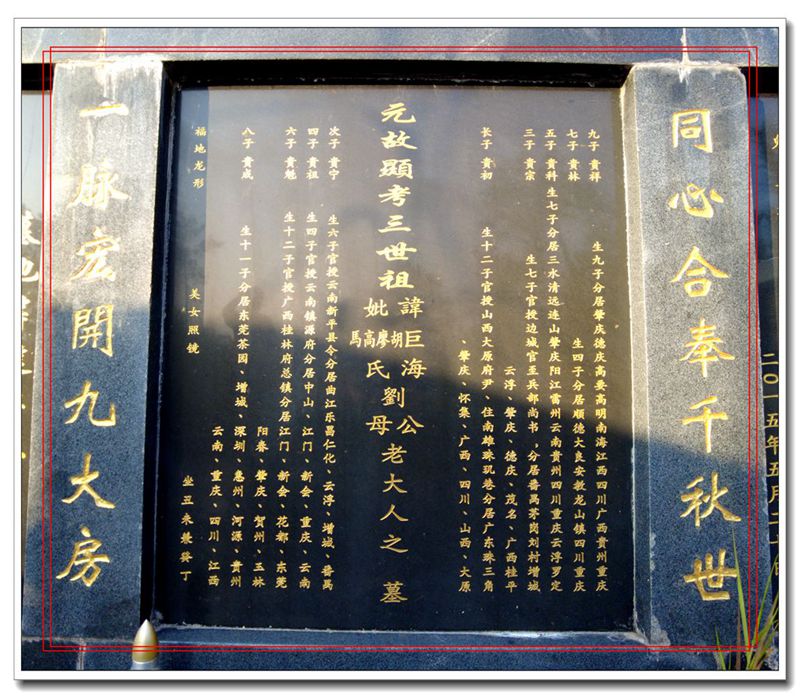 同心合奉千秋世
九子 贵祥 生九子分居肇庆德庆高要高明南海江西四川广西貴州重庆
七子 贵林 生四子分居顺德大良安教龙山镇四川重庆
五子 贵科 生七子分居三水清远连山肇庆阳江雷州云南贵州四川重庆云浮罗定
三子 贵宗 生七子官授边城官至兵部尚书,分居番禺茅岗刘村增城
云浮、肇庆、德庆、茂名、广西桂平
长子 贵初 生十二子官授山西大原府尹、住南雄珠玑巷分居广东珠三角
、肇庆、怀集、广西、四川、山西、大原
元故顯考三世祖
諱巨海劉公
妣胡廖高馬氏母
老大人之墓
次子 贵宁 生六子官授云南新平县令分居曲江乐昌仁化、云浮、增城、番禺
四子 贵祖 生四子官授云南镇源府分居中山、江门、新会、重庆、云南
六子 贵魁 生十二子官授广西桂林府总镇分居江门、新会、花都、东莞
阳春、肇庆、贺州、玉林
八子 贵成 生十一子分居东莞茶园、增城、深圳、惠州、河源、贵州
云南、重庆、四川、江西
福地龙形 美女照镜 坐丑未兼癸丁
一脉宏開九大房
二〇一五年五月二